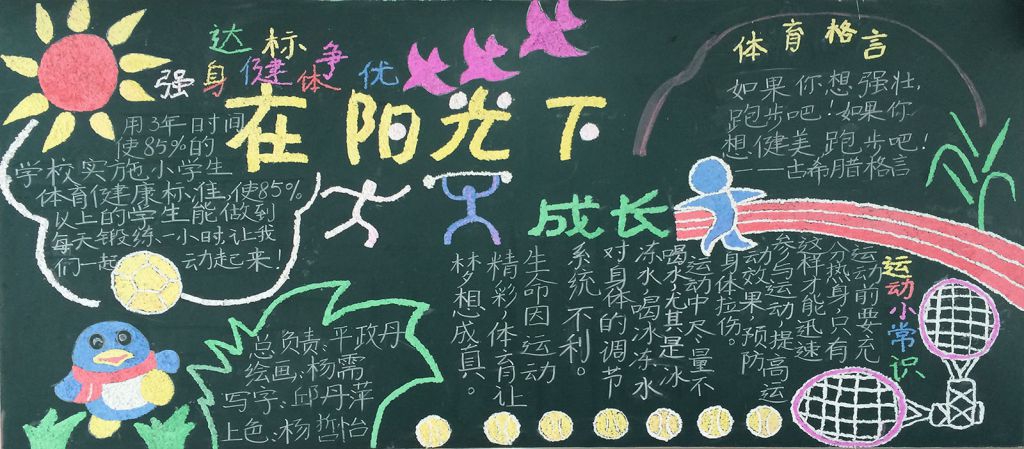 达标争优
强身健体
在阳光下
成长
用3年时间
使85%的
学校实施小学生
体育健康标准,使85%
以上的学生能做到
每天锻练一小时,让我
们一起 动起来!
体育格言
如果你想强壮,
跑步吧!如果你
想健美跑步吧!
——古希腊格言
运动小常识
运动前要充
分热身,只有
这样才能迅速
参与运动,提高运
动效果,预防
身体拉伤。
运动中尽量不
喝水,尤其是冰
冻水,喝冰冻水
对身体的调节
系统不利。
生命因运动
精彩,体育让
梦想成真。
总负责:平政丹
绘画:杨需
写字:邱丹萍
上色:杨哲怡